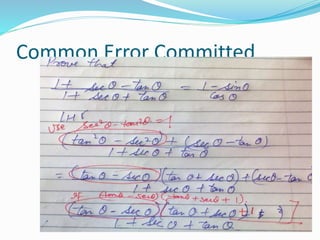 Common Error Committed
Prove that
1 + secθ - tanθ / 1 + secθ + tanθ = 1 - sinθ / cosθ
LHS
Use sec²θ - tan²θ = 1
(tan²θ - sec²θ) + (secθ - tanθ)
1 + secθ + tanθ
= (tanθ - secθ)(tanθ + secθ) + (secθ - tanθ
1 + secθ + tanθ
(tanθ - secθ) (tanθ + secθ + 1)
(tanθ - secθ)(tanθ + secθ + 1
1 + secθ + tanθ